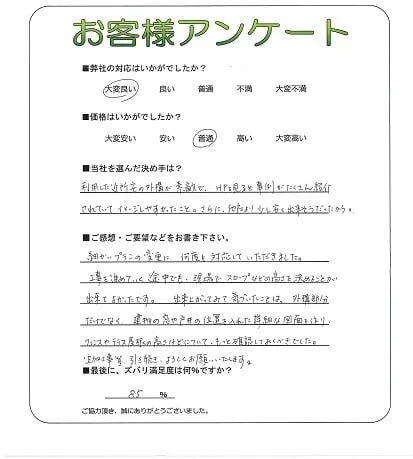 お客様アンケート
■弊社の対応はいかがでしたか?
大変良い 良い 普通 不満 大変不満
■価格はいかがでしたか?
大変安い 安い 普通 高い 大変高い
■当社を選んだ決め手は?
利用した近所宅の外構が素敵で、HPを見ると事例がたくさん紹介
されていてイメージしやすかったこと。さらに、他社より少し安く出来そうだったから。
■ご感想・ご要望などをお書き下さい。
細かいプランの変更に、何度も対応していただきました。
工事を進めていく途中でも、現場でスロープなどの高さを決めることが
出来てよかったです。 出来上がってみて気づいたことは、外構部分
だけでなく、建物の窓や戸井の位置を入れた詳細な図面を作り、
フェンスやテラス屋根の高さなどについて、もっと確認しておくべきでした。
追加工事等、引き続き、よろしくお願いいたします。
■最後に、ズバリ満足度は何%ですか?
85 %
ご協力頂き、誠にありがとうございました。